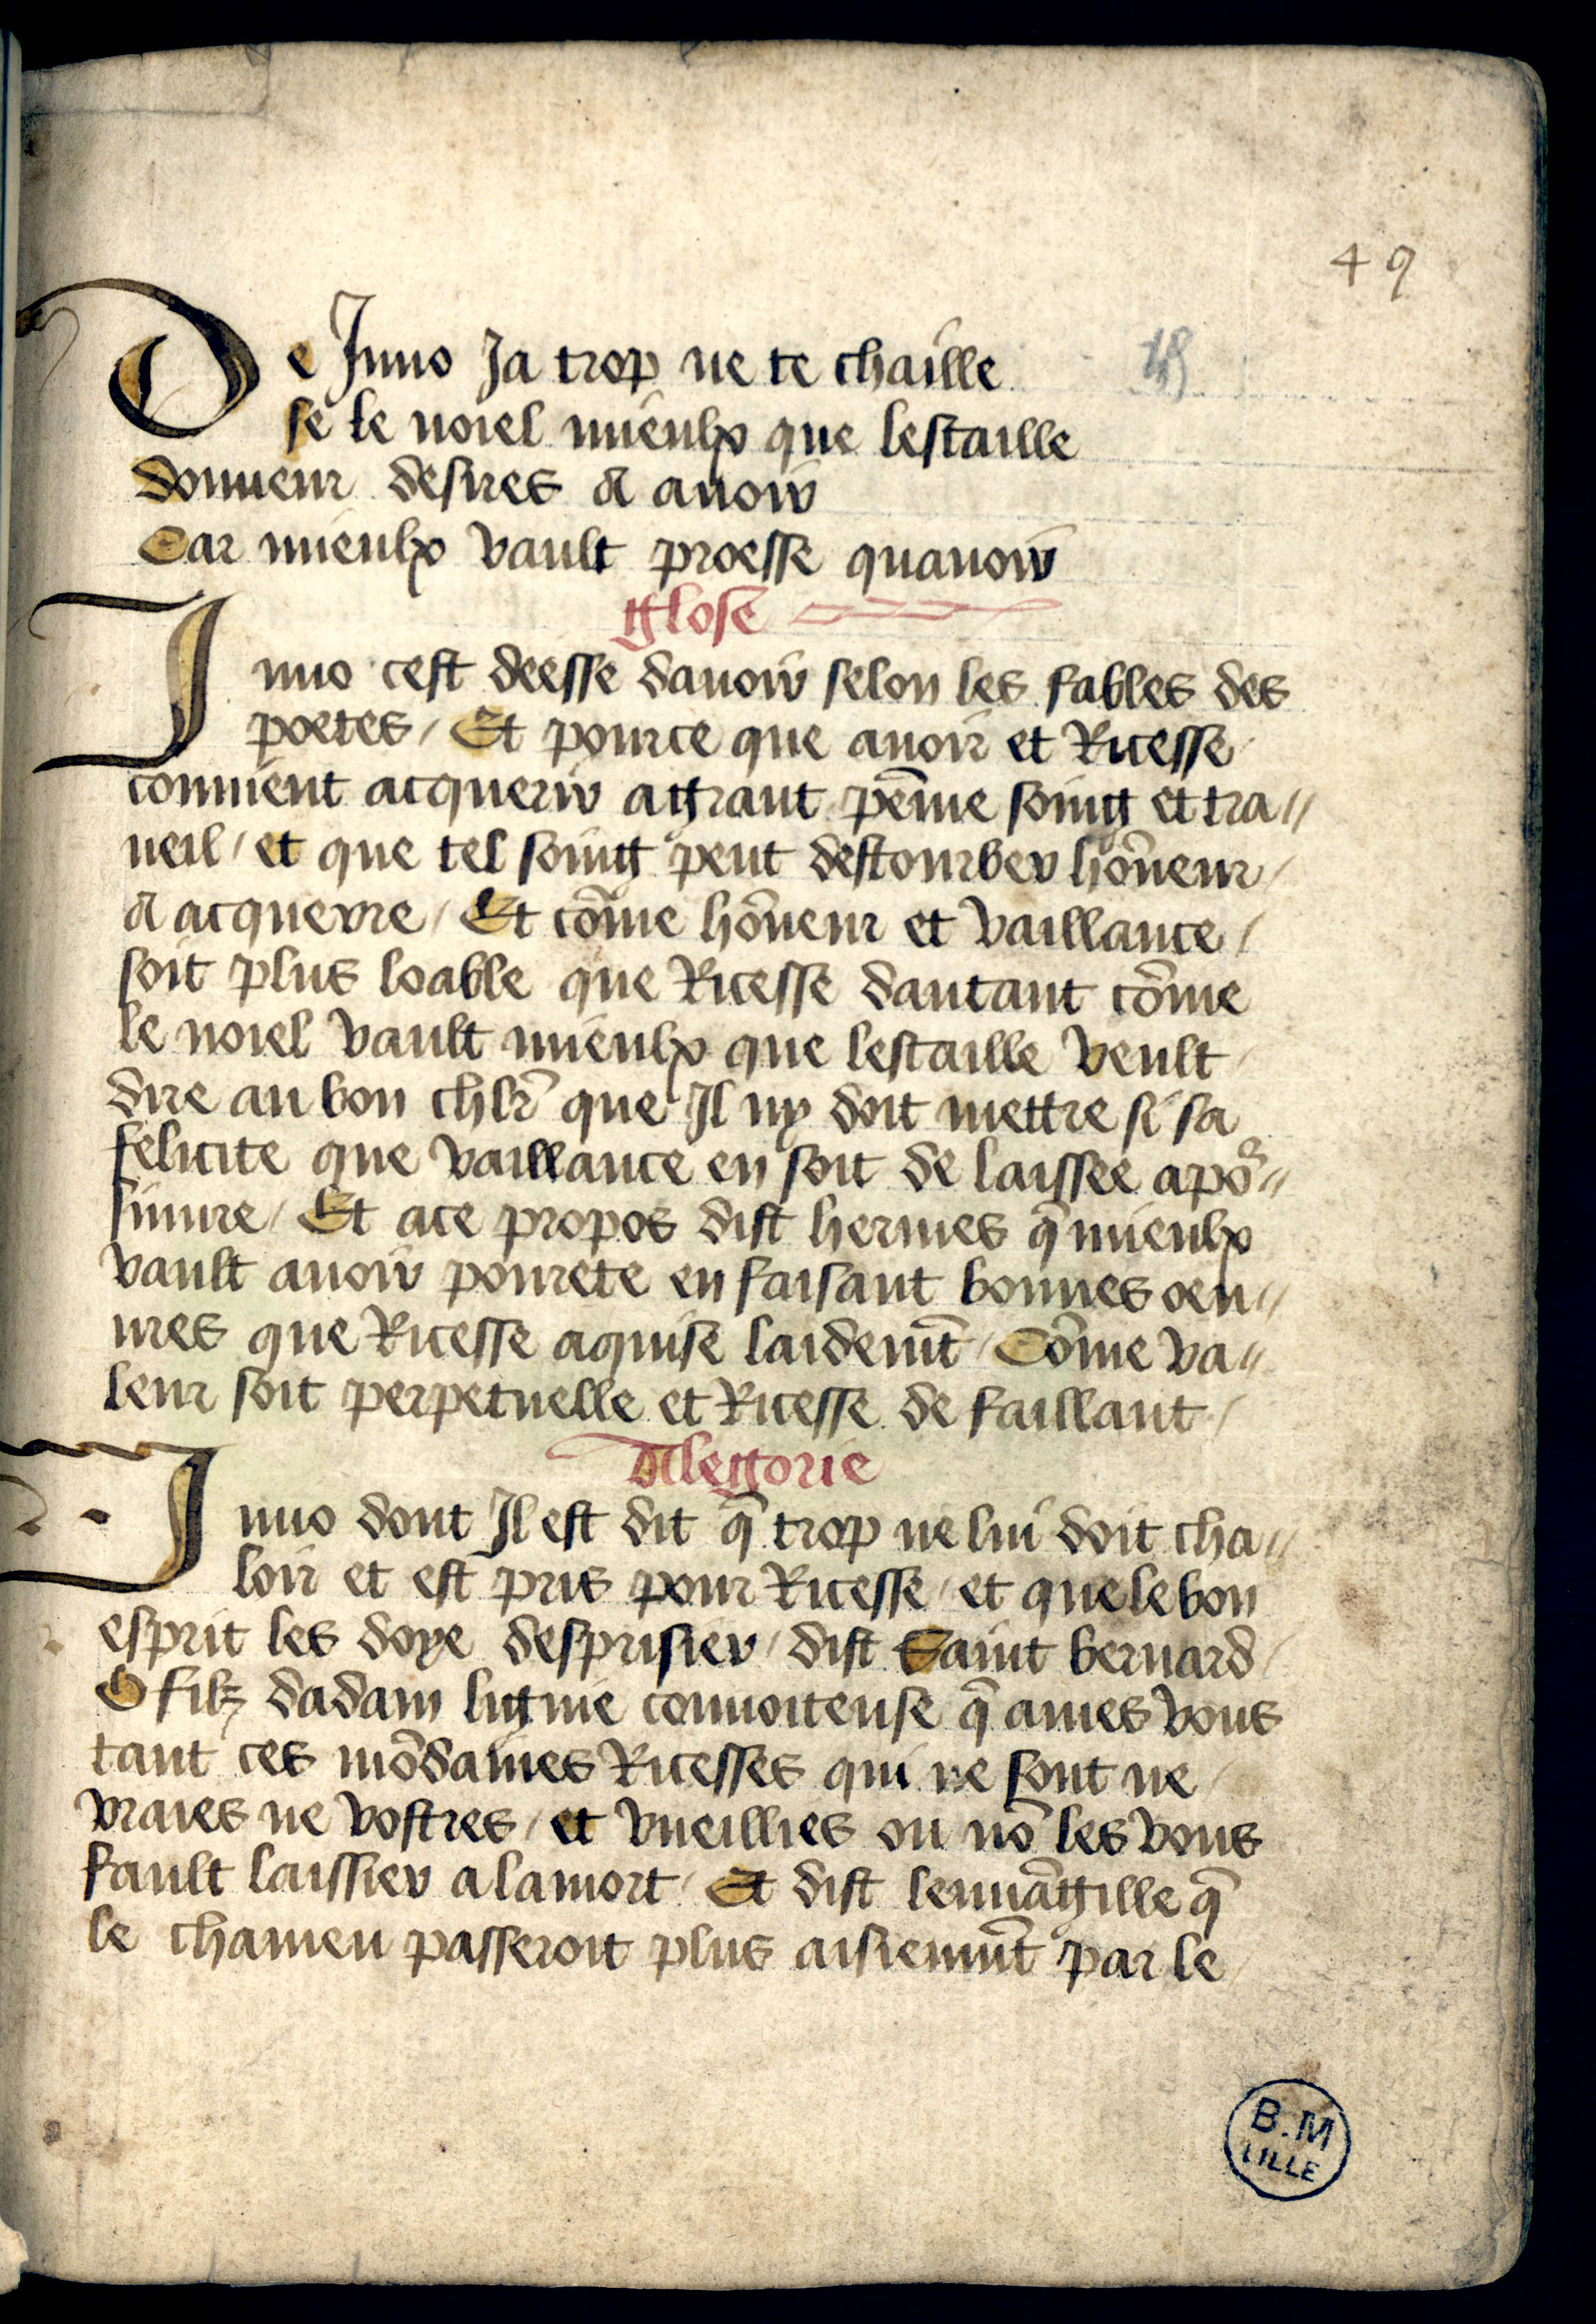 49
De Juno Ja trop ne te chaille
se le noiel mieulx que lestaille
donneur desires a auoir
Car mieulx vault proesse quauoir
glose
Juno cest deesse dauoir selon les fables des
poetes / Et pource que auoir et Ricesse
conuient acquerir agrant pēine soing et tra〃
ueil / et que tel soing peut destourber hōneur /
a acquerre / Et cōme hōneur et vaillance /
soit plus loable que Ricesse dautant cōme
le noiel vault mieulx que lestaille veult
dire au bon chlr̄ que Il ny doit mettre si sa
felicite que vaillance en soit de laissee apoʳ〃
siuure / Et ace propos dist hermes q̄ mieulx
vault auoir pourete en faisant bonnes oeu〃
ures que Ricesse aquise laidemt̄ / Cōme va〃
leur soit perpetuelle et Ricesse de faillant /
Allegorie
Juno dont Il est dit q̄ trop ne lui doit cha〃
loir et est pris pour Ricesse / et que le bon
esprit les doye desprisier / dist Saint bernard /
O filz dadam lignie conuoiteuse q̄ ames vous
tant ces mōdaines Ricesses qui ne sont ne /
vraies ne vostres / et vueillies ou nō les vous
fault laissier a lamort / Et dist leuuāgille q̄
le chameu passeroit plus aisiemnt̄ par le /
B.M
LILLE